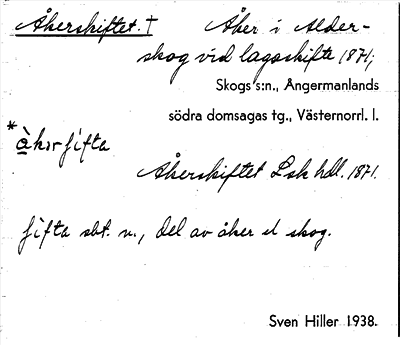 Åkerskiftet. † Åker i Alder-
skog vid lagaskifte 1871;
Skogs s:n., Ångermanlands
södra domsagas tg., Västernorrl. l.
*àkɩrʃifta
Åkerskiftet Lsk hdl. 1871.
ʃifta sbt. n., del av åker el skog.
Sven Hiller 1938.